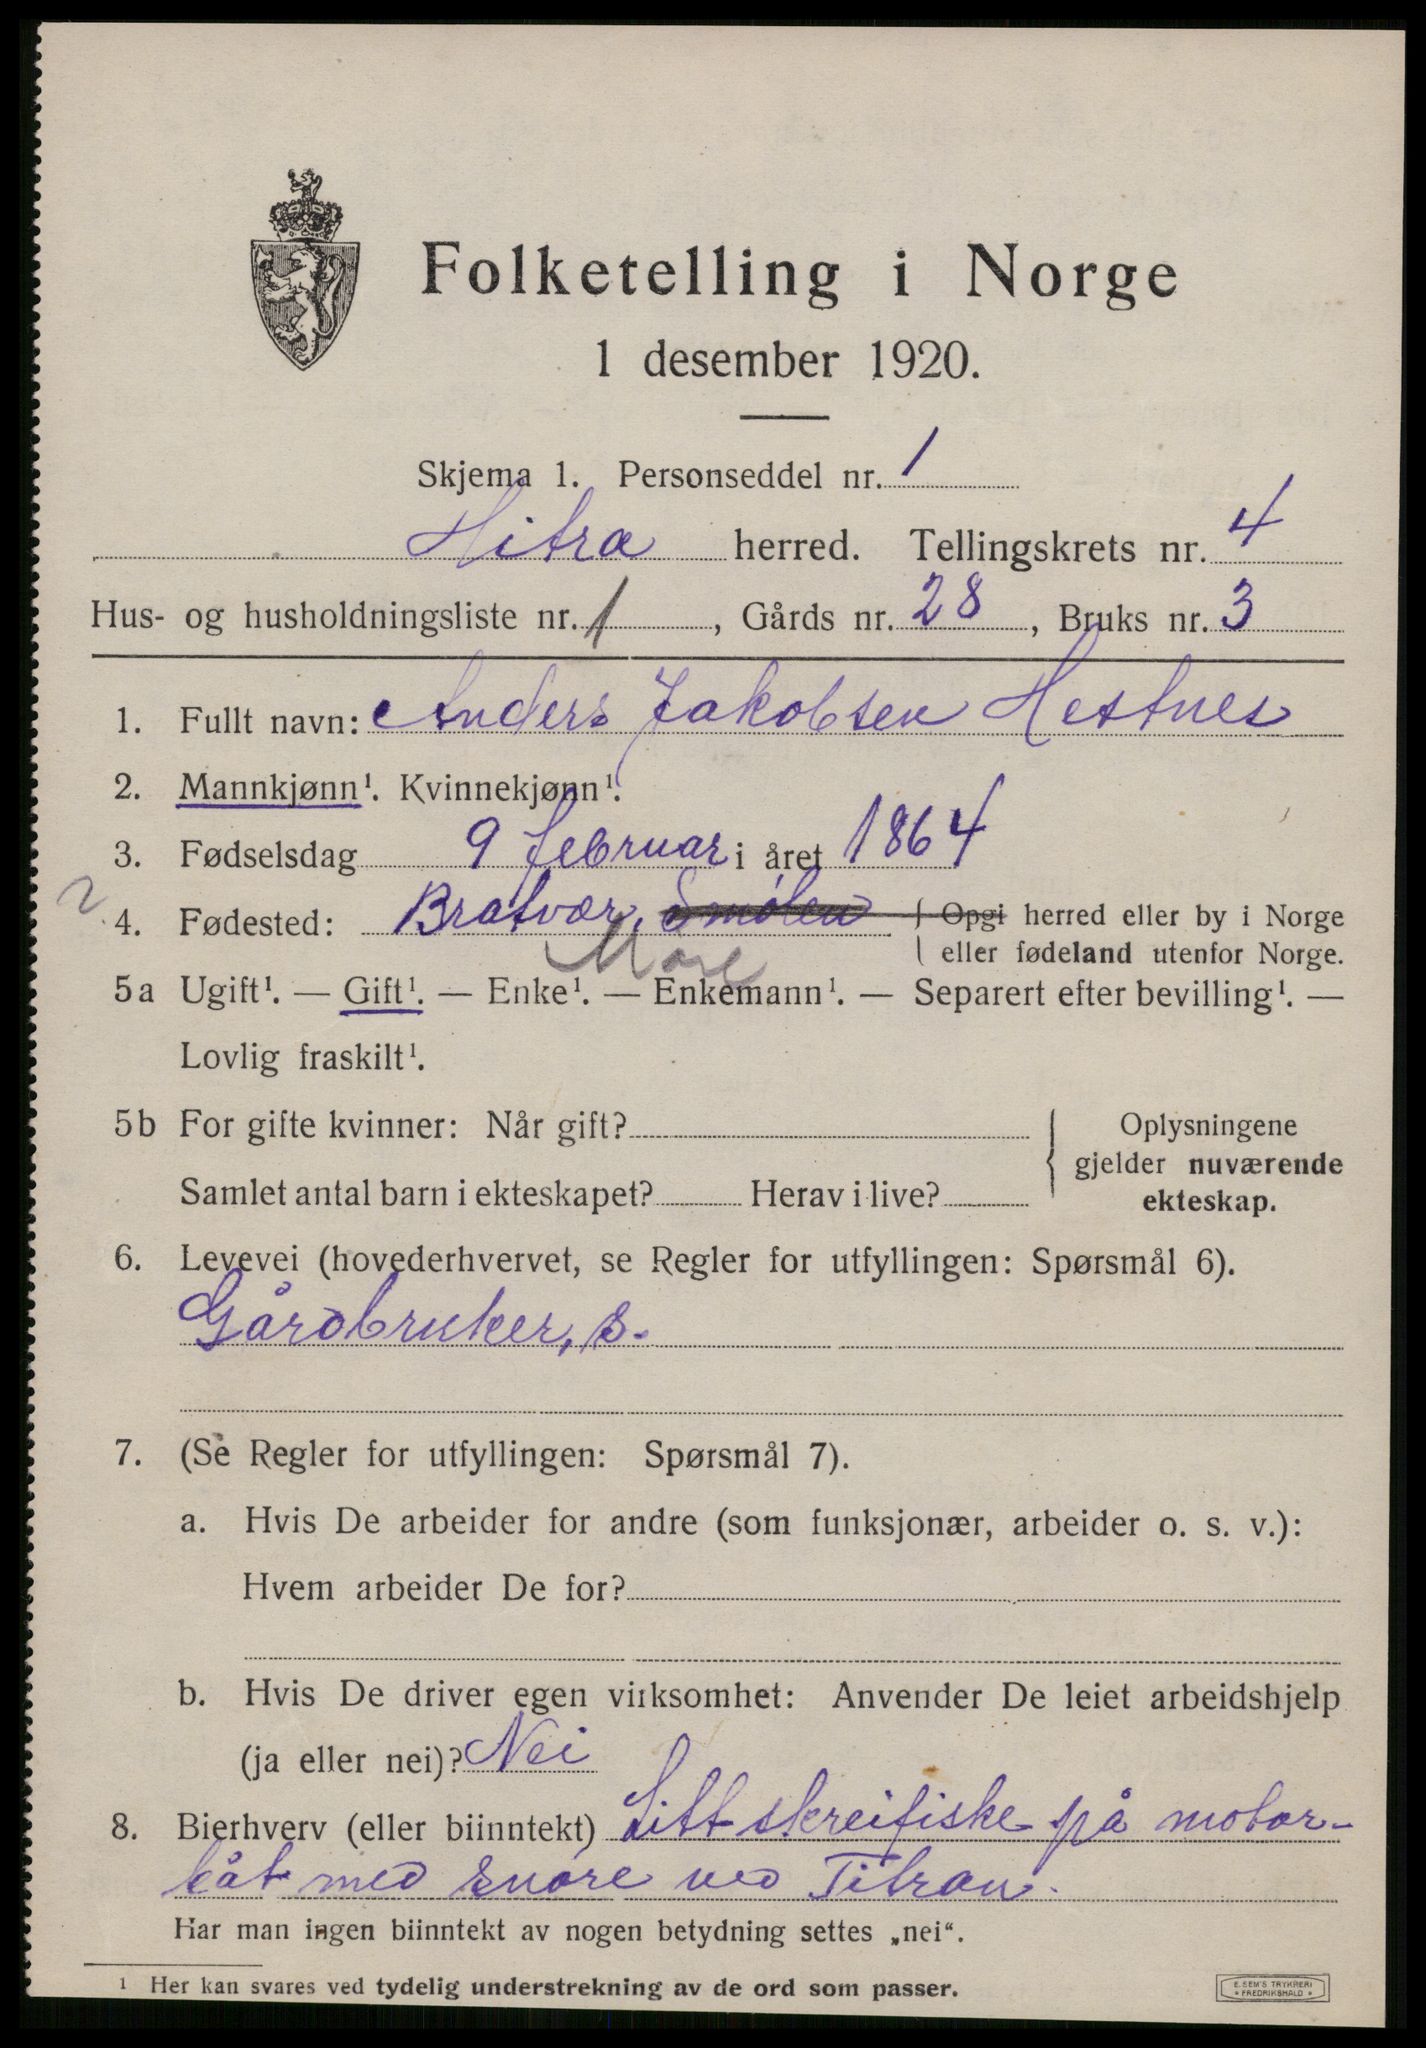 Folketelling i Norge
1 desember 1920.
Skjema 1. Personseddel nr. 1
Hitra herred. Tellingskrets nr. 4
Hus- og husholdningsliste nr. 1, Gårds nr. 28, Bruks nr. 3
1. Fullt navn: Anders Jakobsen Hestnes
2. Mannkjønn¹. Kvinnekjønn¹.
3. Fødselsdag 9 februar i året 1864
2
4. Fødested: Bratvær, Smølen { Opgi herred eller by i Norge
Møre eller fødeland utenfor Norge.
5a Ugift¹. — Gift¹. — Enke¹. — Enkemann¹. — Separert efter bevilling¹. —
Lovlig fraskilt¹.
5b For gifte kvinner: Når gift? Oplysningene
gjelder nuværende
Samlet antal barn i ekteskapet? Herav i live? ekteskap.
6. Levevei (hovederhvervet, se Regler for utfyllingen: Spørsmål 6).
Gårdbruker, s.
7. (Se Regler for utfyllingen: Spørsmål 7).
a. Hvis De arbeider for andre (som funksjonær, arbeider o. s. v.):
Hvem arbeider De for?
b. Hvis De driver egen virksomhet: Anvender De leiet arbeidshjelp
(ja eller nei)? Nei
8. Bierhverv (eller biinntekt) Litt skreifiske på motor-
båt med snøre ved Titran.
Har man ingen biinntekt av nogen betydning settes „nei“.
¹ Her kan svares ved tydelig understrekning av de ord som passer.
E. SEM'S TRYKKERI
* FREDRIKSHALD *